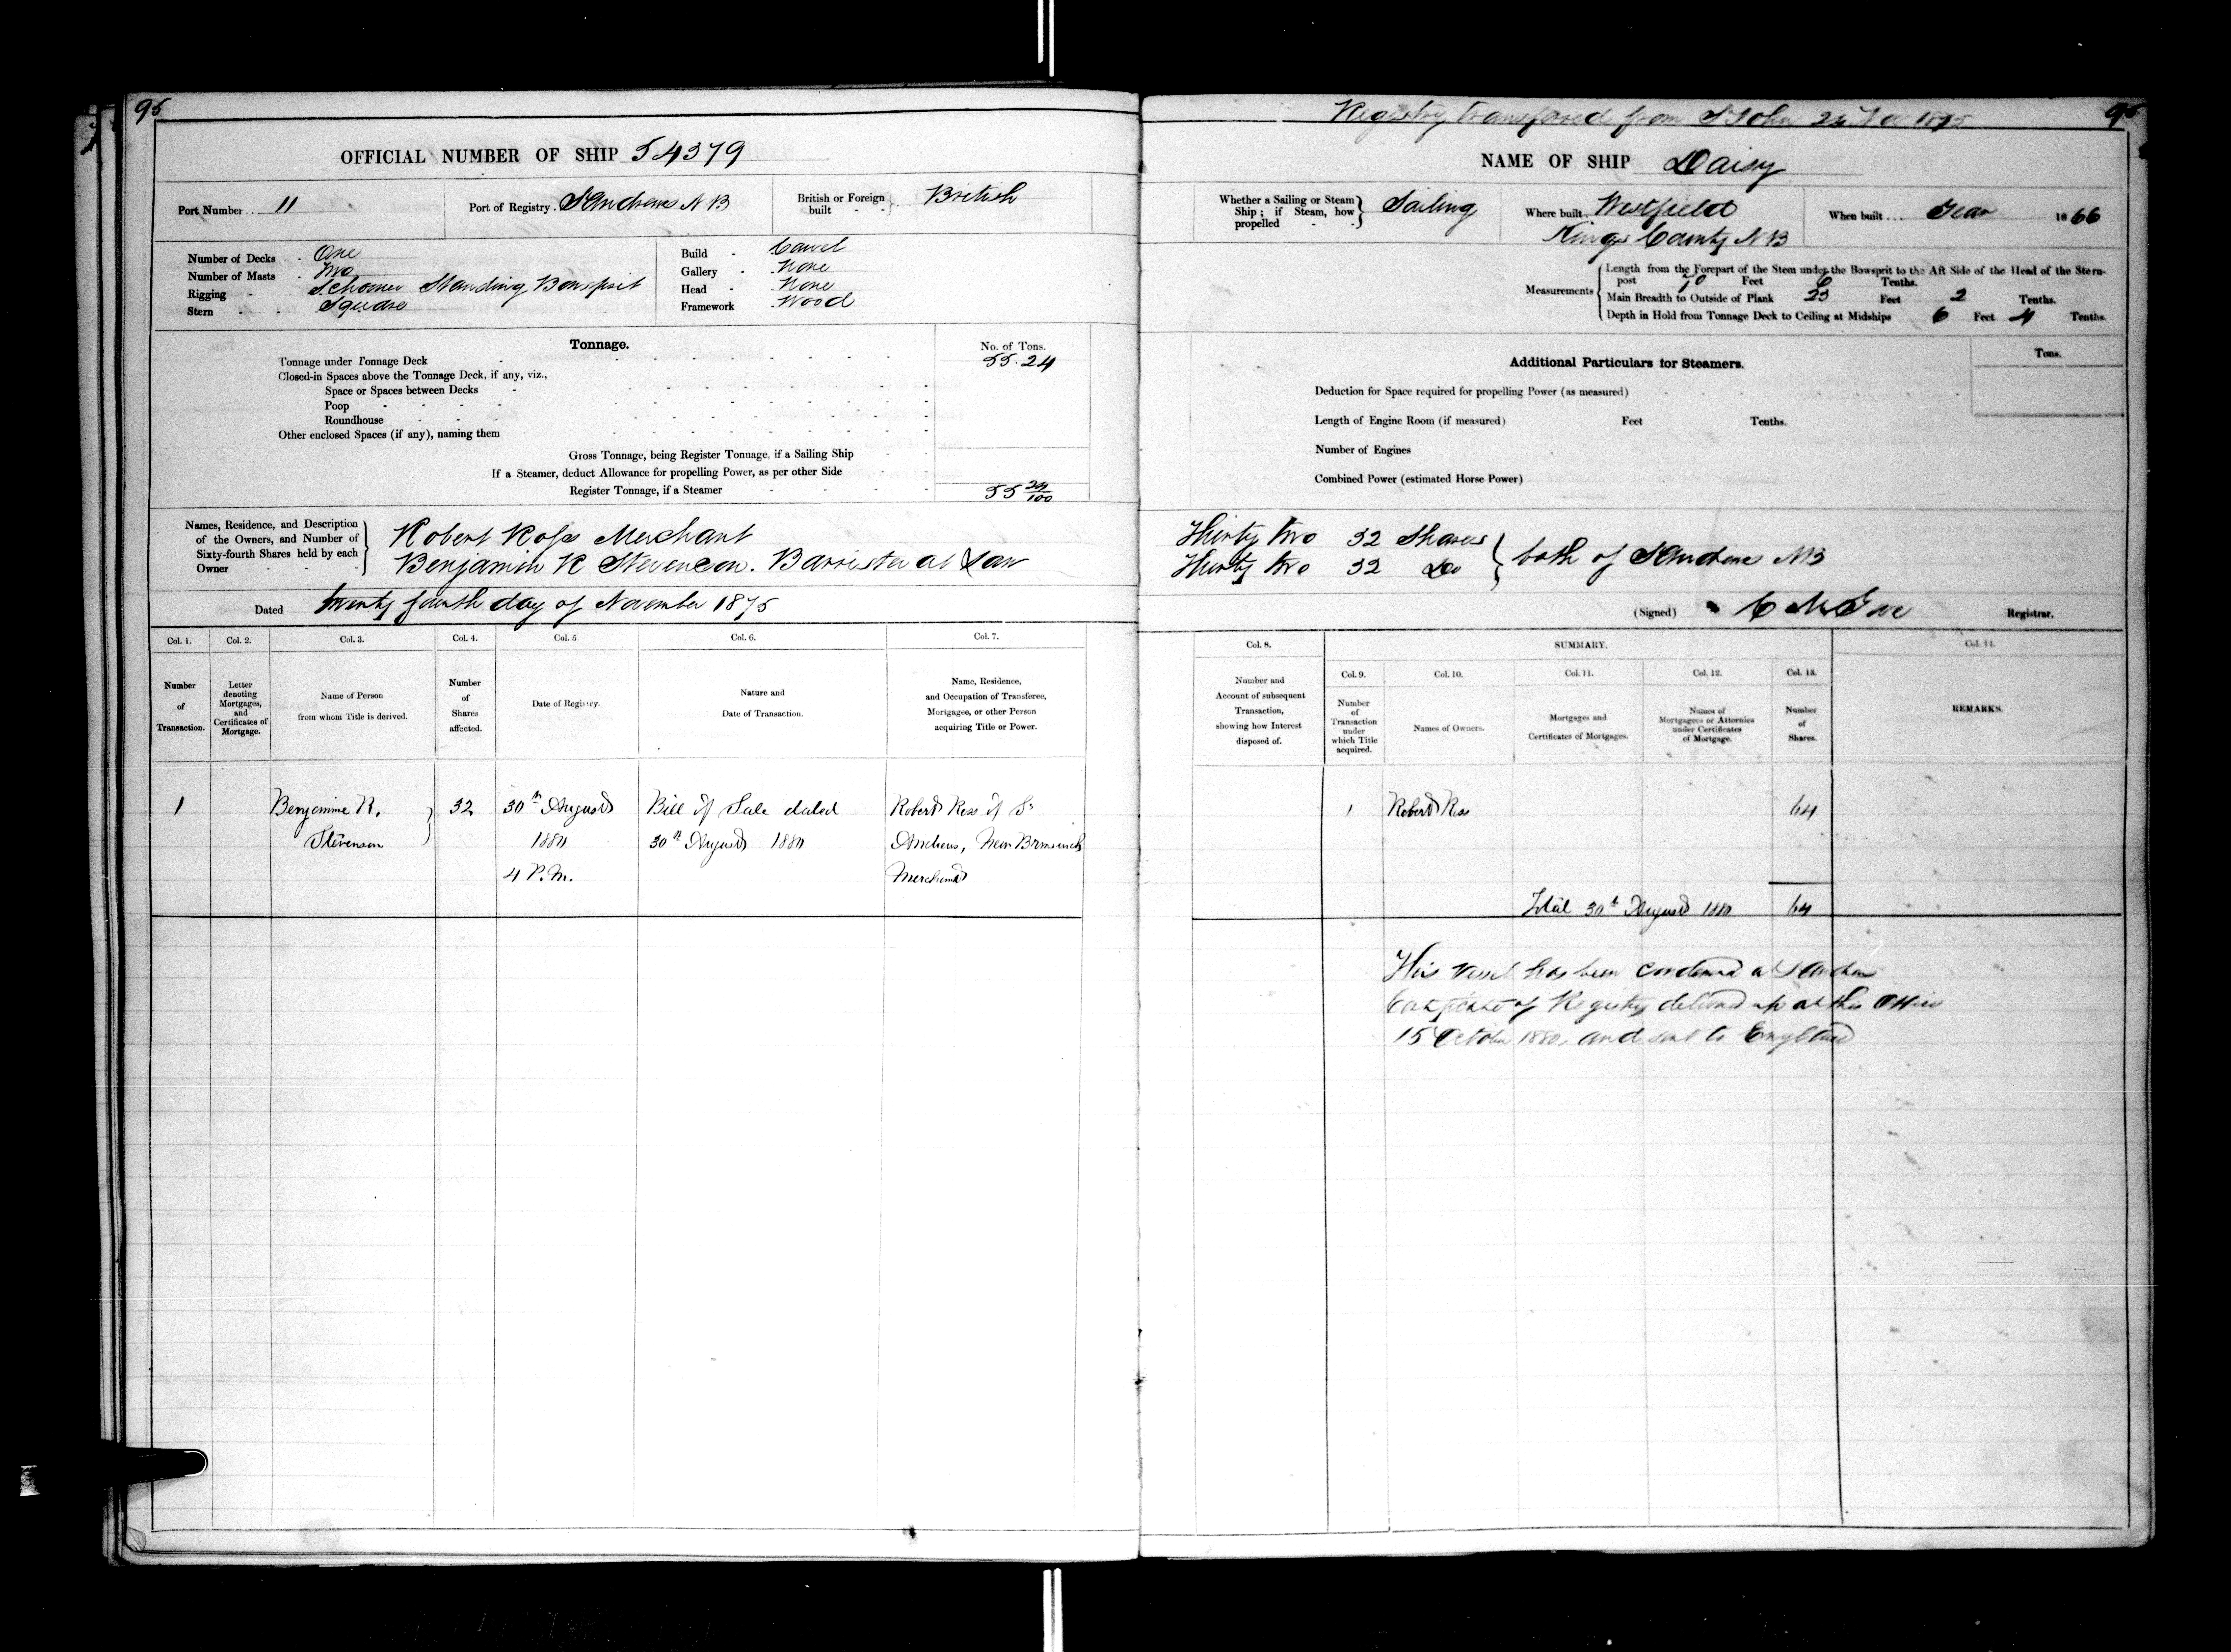 95
OFFICIAL NUMBER OF SHIP 54379
Port Number 11
Port of Registry. St Andrews N B
British or Foreign built British
Number of Decks One
Number of Masts Two
Rigging Schooner Standing Bowsprit
Stern Square
Build Carvel
Gallery None
Head None
Framework Wood
Tonnage.
No. of Tons.
Tonnage under Tonnage Deck 55.24
Closed-in Spaces above the Tonnage Deck, if any, viz.,
Space or Spaces between Decks
Poop
Roundhouse
Other enclosed Spaces (if any), naming them
Gross Tonnage, being Register Tonnage, if a Sailing Ship
If a Steamer, deduct Allowance for propelling Power, as per other Side
Register Tonnage, if a Steamer 55 24/100
Names, Residence, and Description of the Owners, and Number of Sixty-fourth Shares held by each Owner
Robert Ross Merchant
Benjamin R Stevenson. Barrister at Law
Dated twenty fourth day of November 1875
Col. 1. Col. 2. Col. 3. Col. 4. Col. 5 Col. 6. Col. 7.
Number of Transaction.
Letter denoting Mortgages, and Certificates of Mortgage.
Name of Person from whom Title is derived.
Number of Shares affected.
Date of Registry.
Nature and Date of Transaction.
Name, Residence, and Occupation of Transferee, Mortgagee, or other Person acquiring Title or Power.
1 Benjamine R. 32 30th August Bill of Sale dated Robert Ross of St
Stevenson 1880 30th August 1880 Andrews, New Brunswick
4 P.M. Merchant
Registry transfered from St John 24 Nov 1875
95
NAME OF SHIP Daisy
Whether a Sailing or Steam Ship; if Steam, how propelled Sailing
Where built Westfield
Kings County N B
When built Year 1866
Measurements
Length from the Forepart of the Stem under the Bowsprit to the Aft Side of the Head of the Stern-
post 70 Feet 6 Tenths.
Main Breadth to Outside of Plank 23 Feet 2 Tenths.
Depth in Hold from Tonnage Deck to Ceiling at Midships 6 Feet 4 Tenths.
Additional Particulars for Steamers.
Tons.
Deduction for Space required for propelling Power (as measured)
Length of Engine Room (if measured) Feet Tenths.
Number of Engines
Combined Power (estimated Horse Power)
Thirty two 32 Shares
Thirty two 32 Do
both of St Andrews NB
(Signed) C M Gove Registrar.
Col. 8. SUMMARY. Col. 14.
Col. 9. Col. 10. Col. 11. Col. 12. Col. 13.
Number and Account of subsequent Transaction, showing how Interest disposed of.
Number of Transaction under which Title acquired.
Names of Owners.
Mortgages and Certificates of Mortgages.
Names of Mortgagees or Attornies under Certificates of Mortgage.
Number of Shares.
REMARKS.
1 Robert Ross 64
Total 30th August 1880 64
This vessel has been condemned at St Andrews
Certificate of Registry delivered up at this Office
15 October 1880, and sent to England